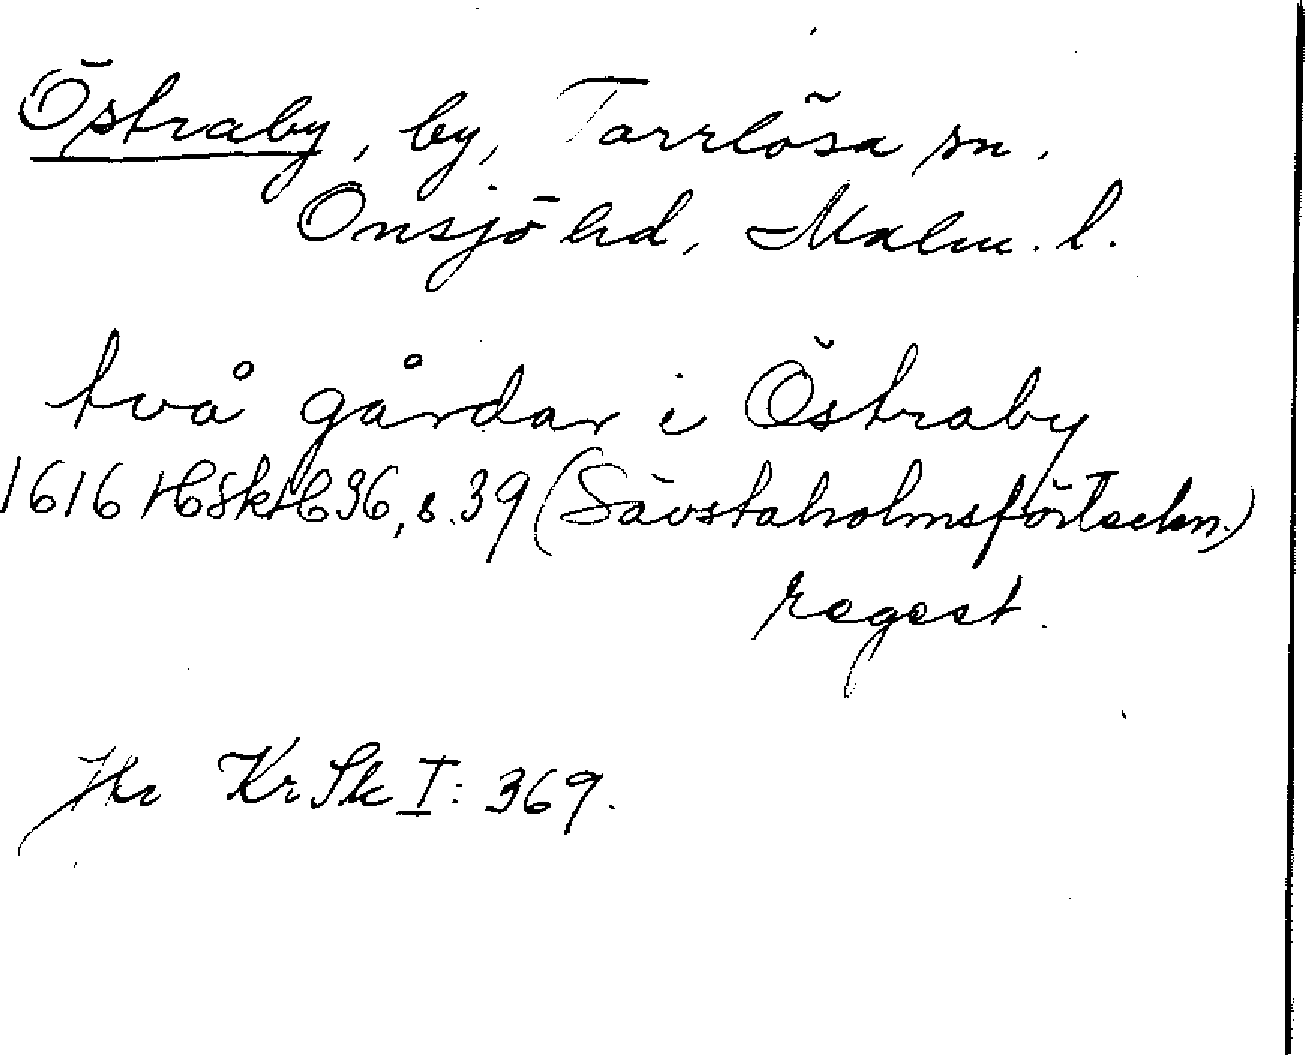 Östraby, by, Torrlösa sn.
Onsjö hd, Malm. l.
två gårdar i Östraby
1616 HSkH 36, s. 39 (Sävstaholmsförteckn.)
regest.
Jfr KrSk I: 369.